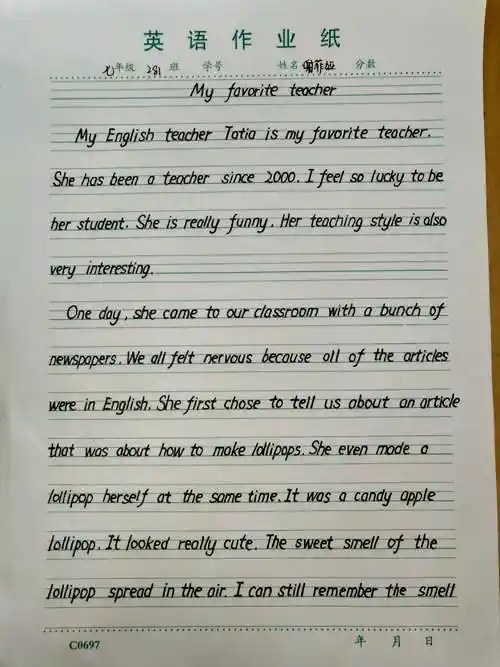 英语作业纸
七年级 281 班 学号 姓名 分数
My favorite teacher
My English teacher Tatia is my favorite teacher.
She has been a teacher since 2000. I feel so lucky to be
her student. She is really funny. Her teaching style is also
very interesting.
One day, she came to our classroom with a bunch of
newspapers. We all felt nervous because all of the articles
were in English. She first chose to tell us about an article
that was about how to make lollipops. She even made a
lollipop herself at the same time. It was a candy apple
lollipop. It looked really cute. The sweet smell of the
lollipop spread in the air. I can still remember the smell
C0697 年 月 日